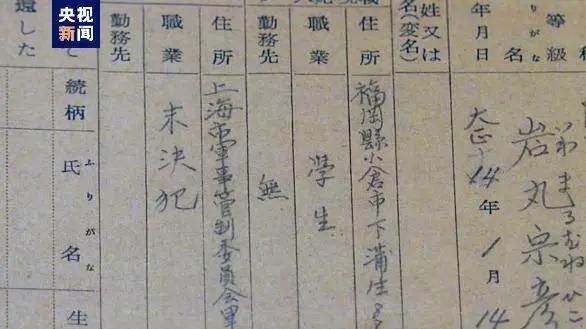 央视新闻
等級
りがな
名
いわまるむねひこ
岩丸宗彦
年月日
大正14年1月14
姓又は
名(変名)
住所
福岡縣小倉市下蒲生8
職業
學生
勤務先
無
住所
上海市軍事管制委員会軍
職業
未決犯
勤務先
て
続柄
ふりがな
氏名
生
還した